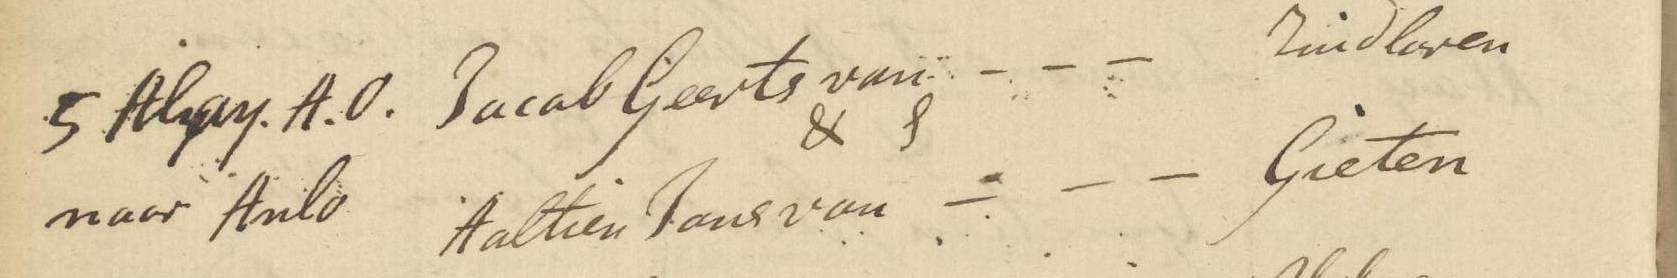 5 May. A.O. Jacob Geerts van - - - Zuidlaren
& §
naar Anlo Aaltien Jans van - - - Gieten